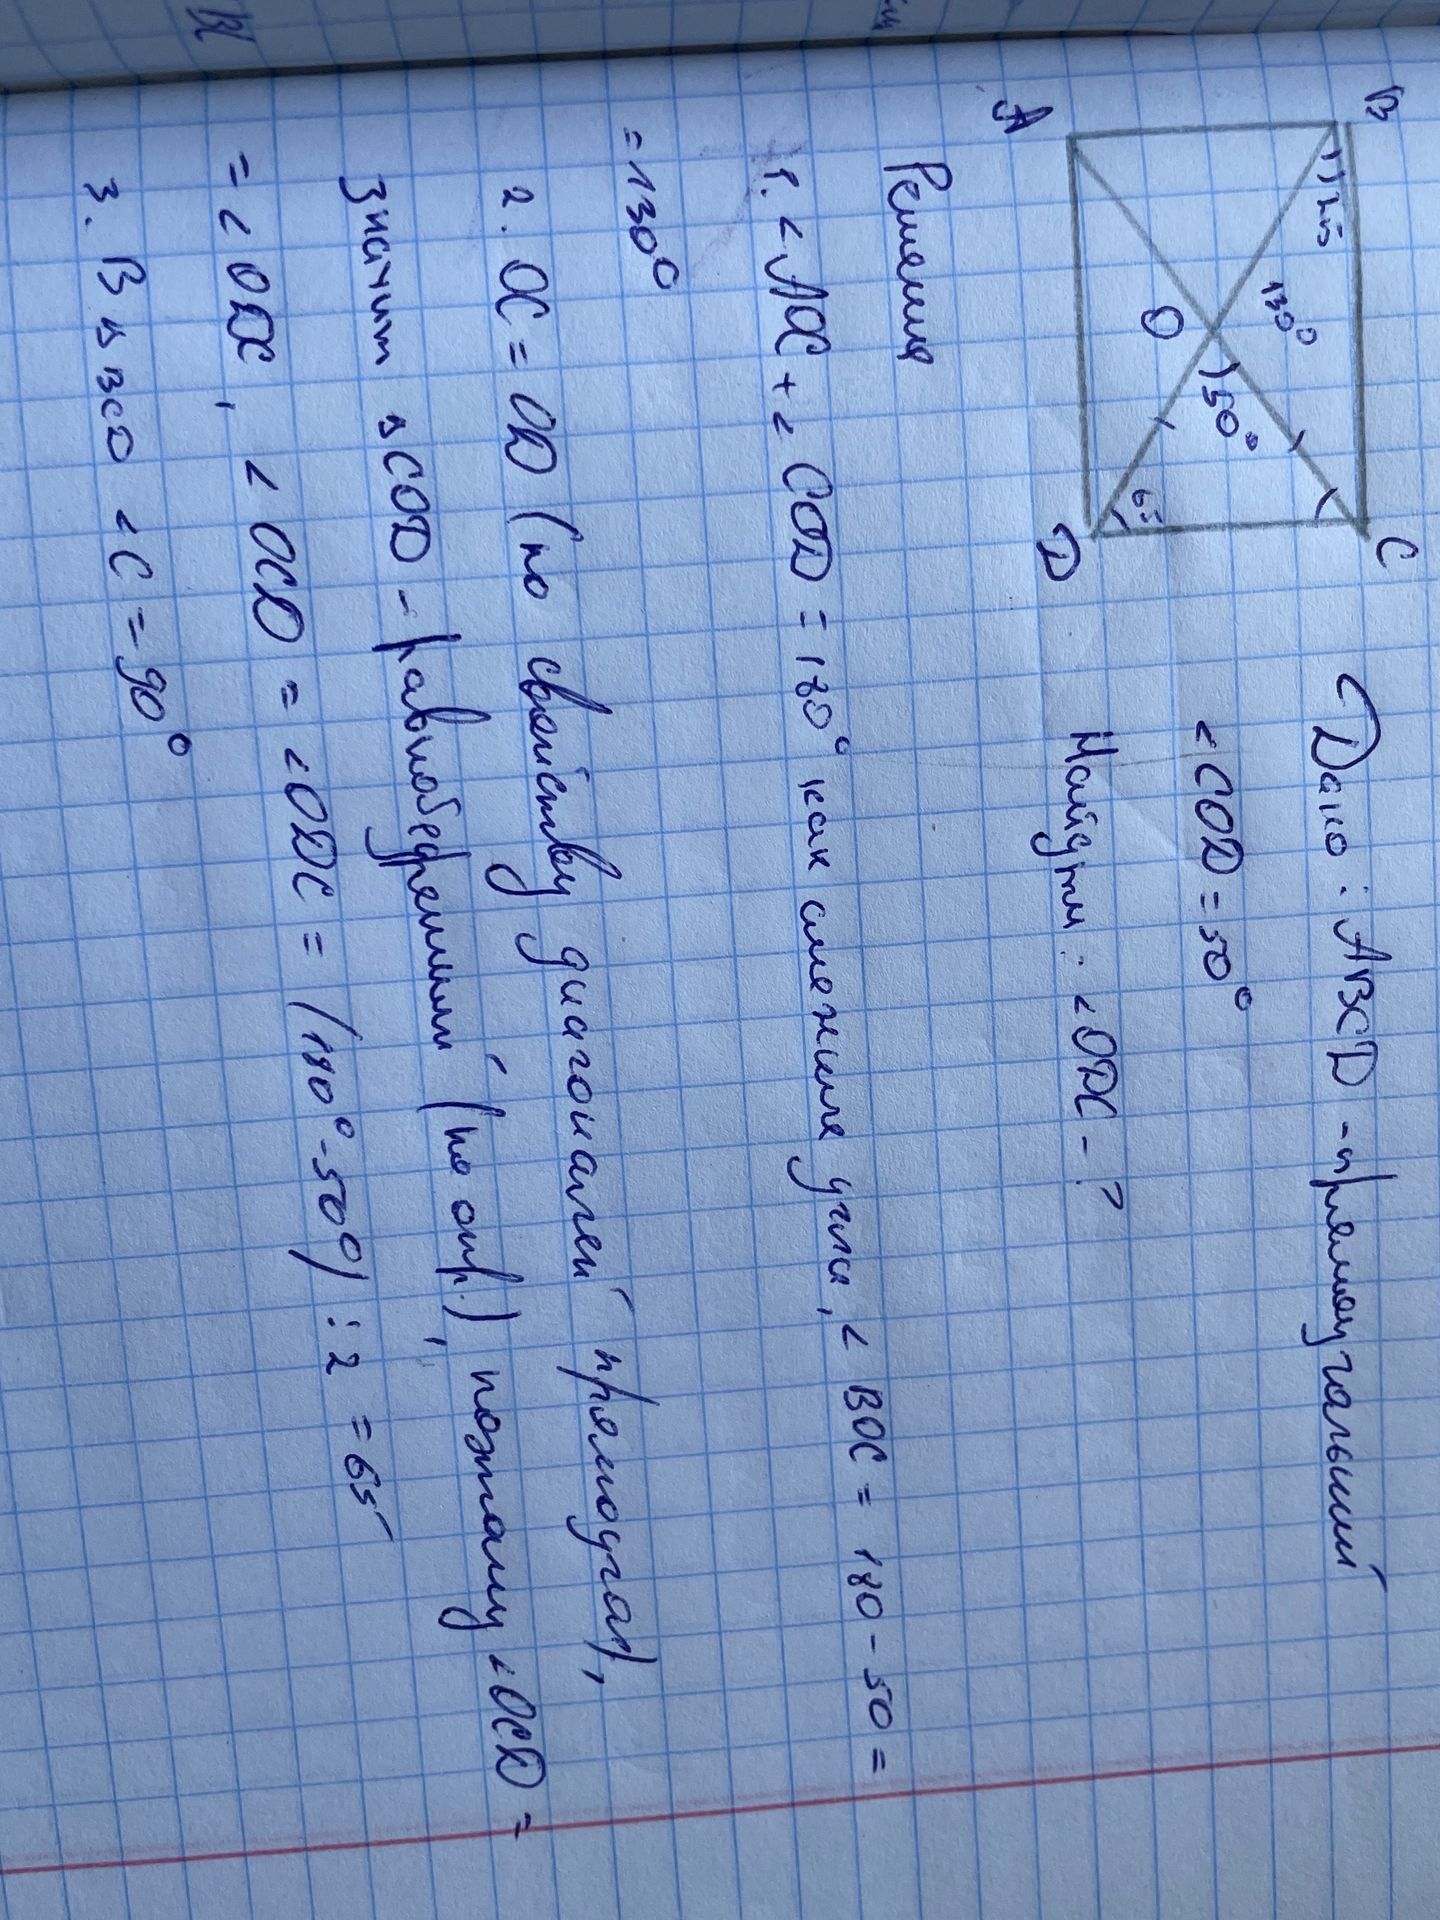 B
C
A
D
O
25
130°
50°
65
Дано: ABCD - прямоугольный
<COD = 50°
Найти: <ODC - ?
Решение
1. <AOC + < COD = 180° как смежные углы, < BOC = 180 - 50 =
= 130°
2. OC = OD (по свойству диагоналей прямоугол),
Значит △COD - равнобедренный (по опр.), поэтому <OCD =
= <ODC, <OCD = <ODC = (180° - 50°) : 2 = 65
3. В △ BCD <C = 90°